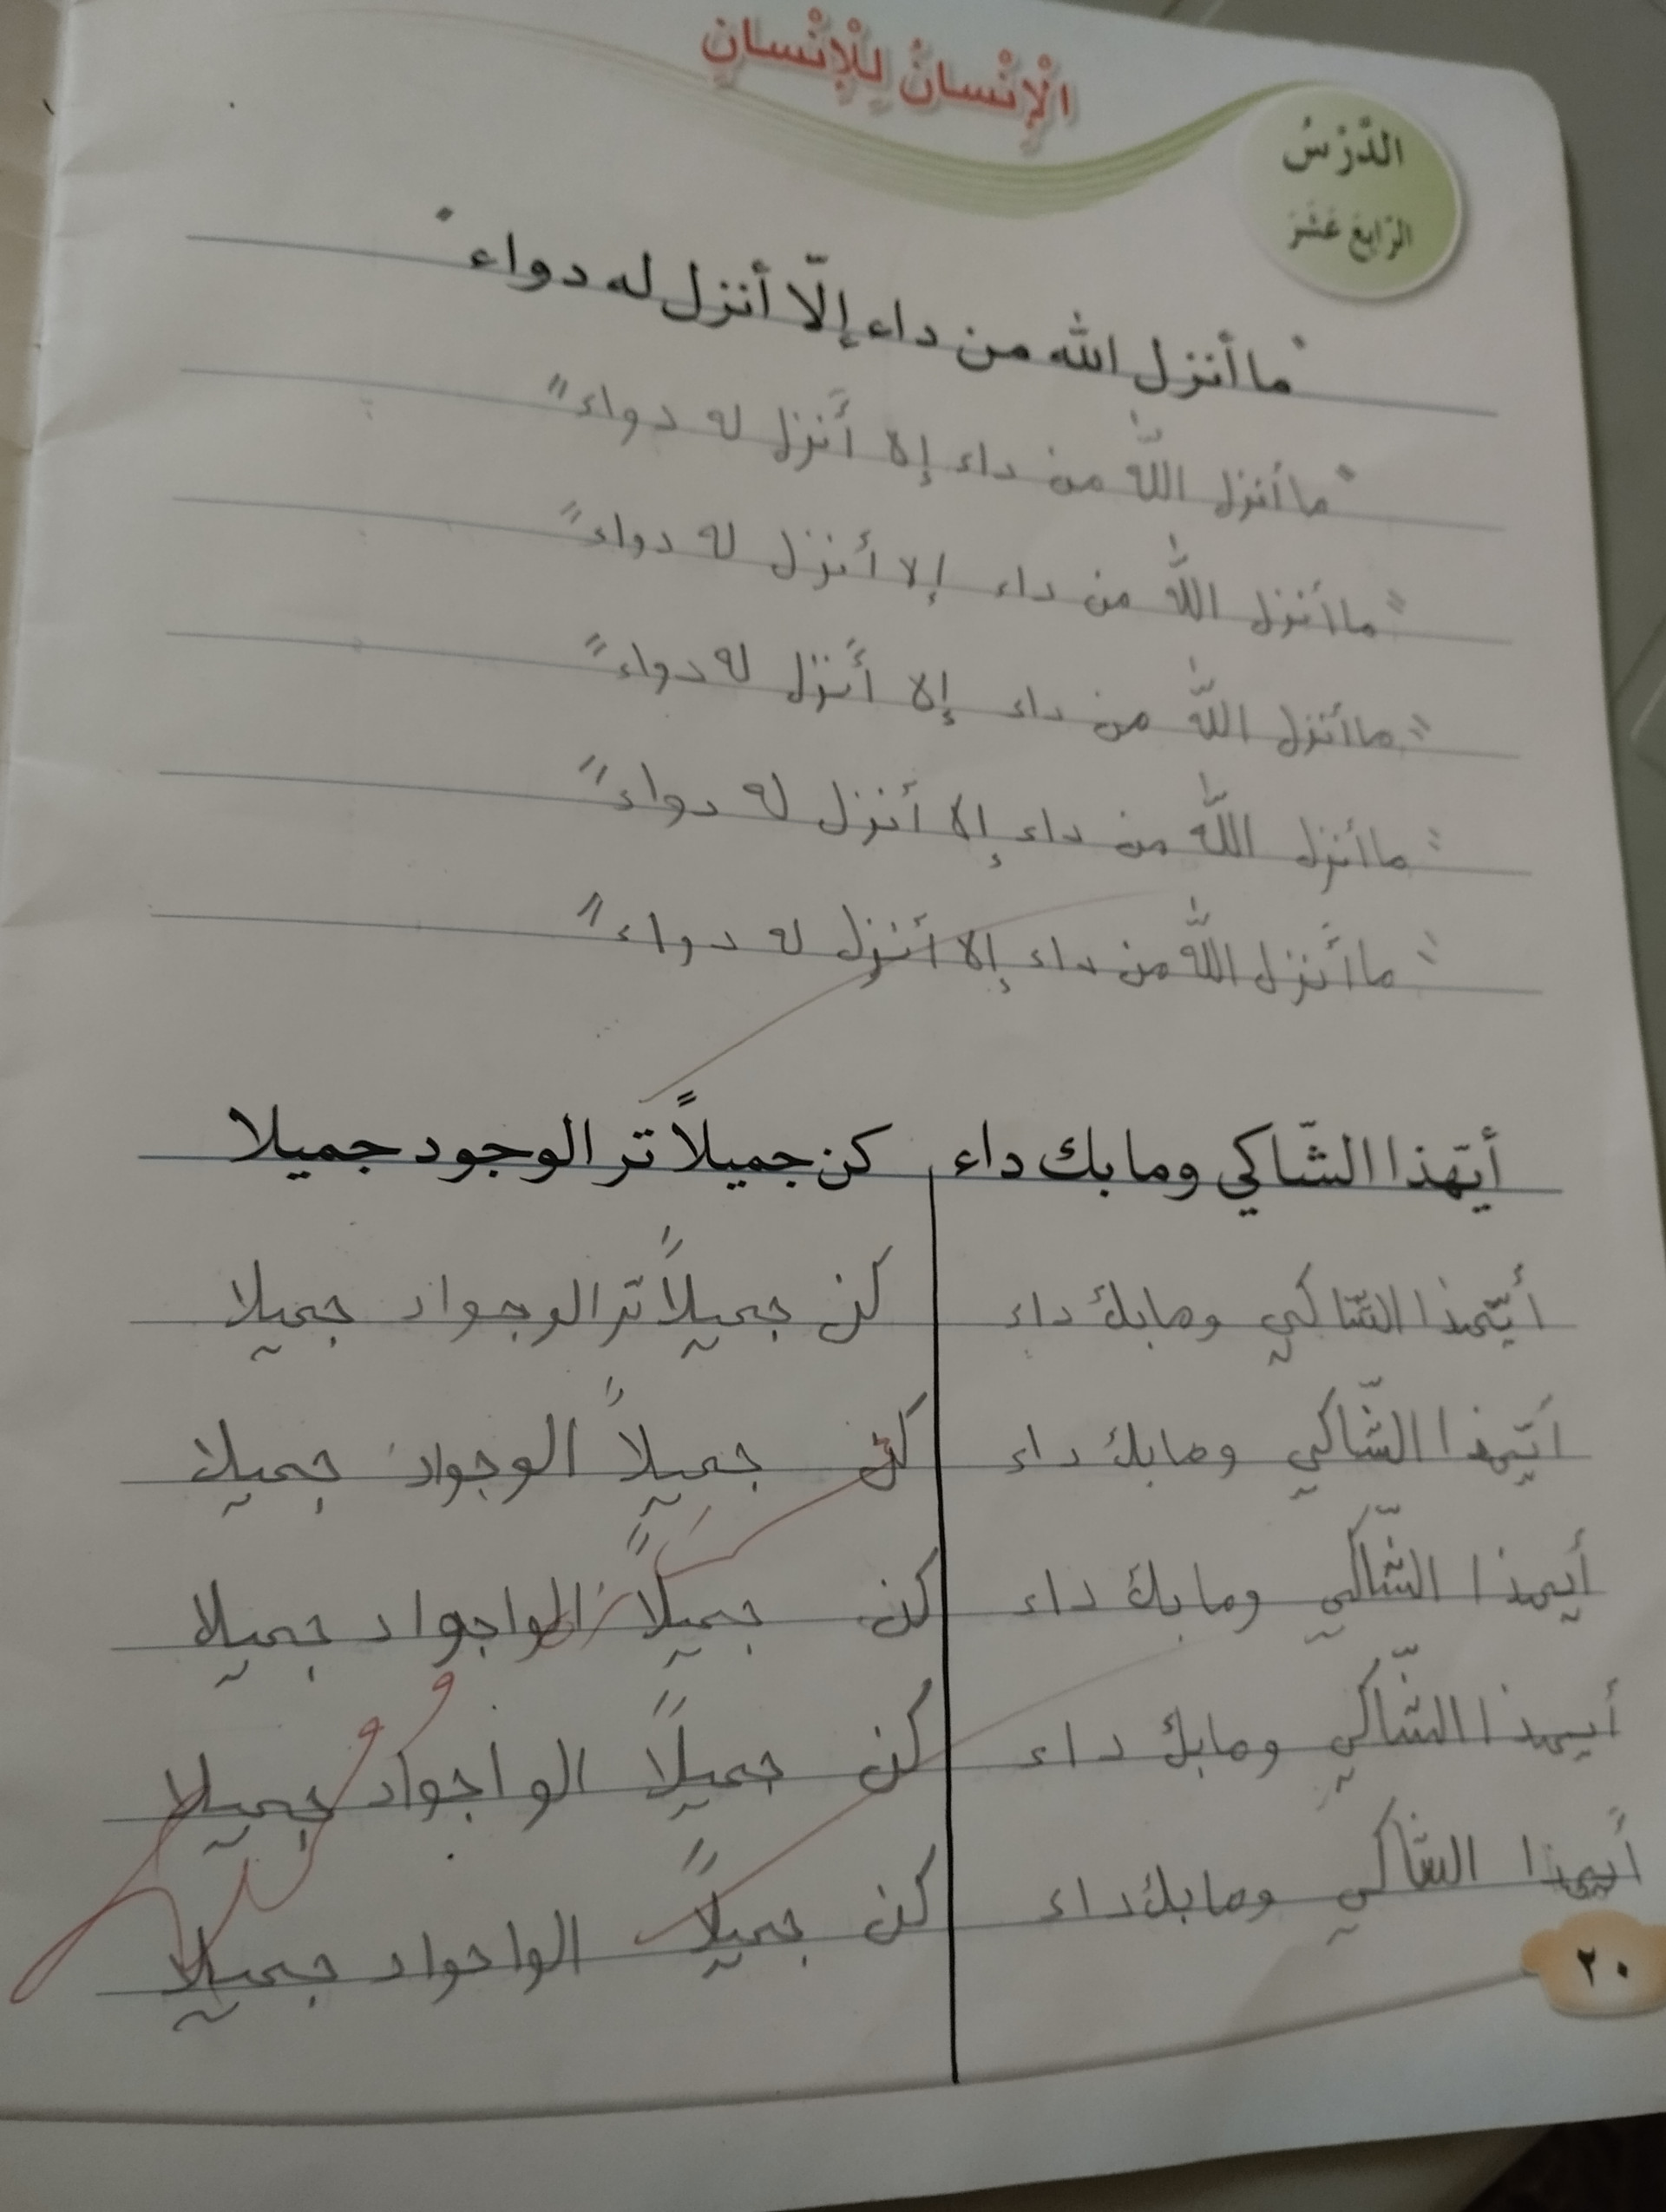 الْإِنْسانُ لِلْإِنْسانِ
الدَّرْسُ
الرّابِعَ عَشَرَ
"ما أنزل الله من داء إلّا أنزل له دواء"
"ما أنزل اللّه من داء إلا أنزل له دواء"
"ما أنزل اللّه من داء إلا أنزل له دواء"
"ما أنزل اللّه من داء إلا أنزل له دواء"
"ما أنزل اللّه من داء إلا أنزل له دواء"
"ما أنزل اللّه من داء إلا أنزل له دواء"
أيّهذا الشّاكي وما بك داء كن جميلاً تر الوجود جميلا
أيّهذا الشّاكي وما بك داء كن جميلاً تر الوجواد جميلا
أيّهذا الشّاكي وما بك داء كن جميلاً الوجواد جميلا
أيهذا الشّاكي وما بك داء كن جميلاً الواجواد جميلا
أيهذا الشّاكي وما بك داء كن جميلاً الواجواد جميلا
أيهذا الشاكي وما بك داء كن جميلاً الواحواد جميلا
٢٠